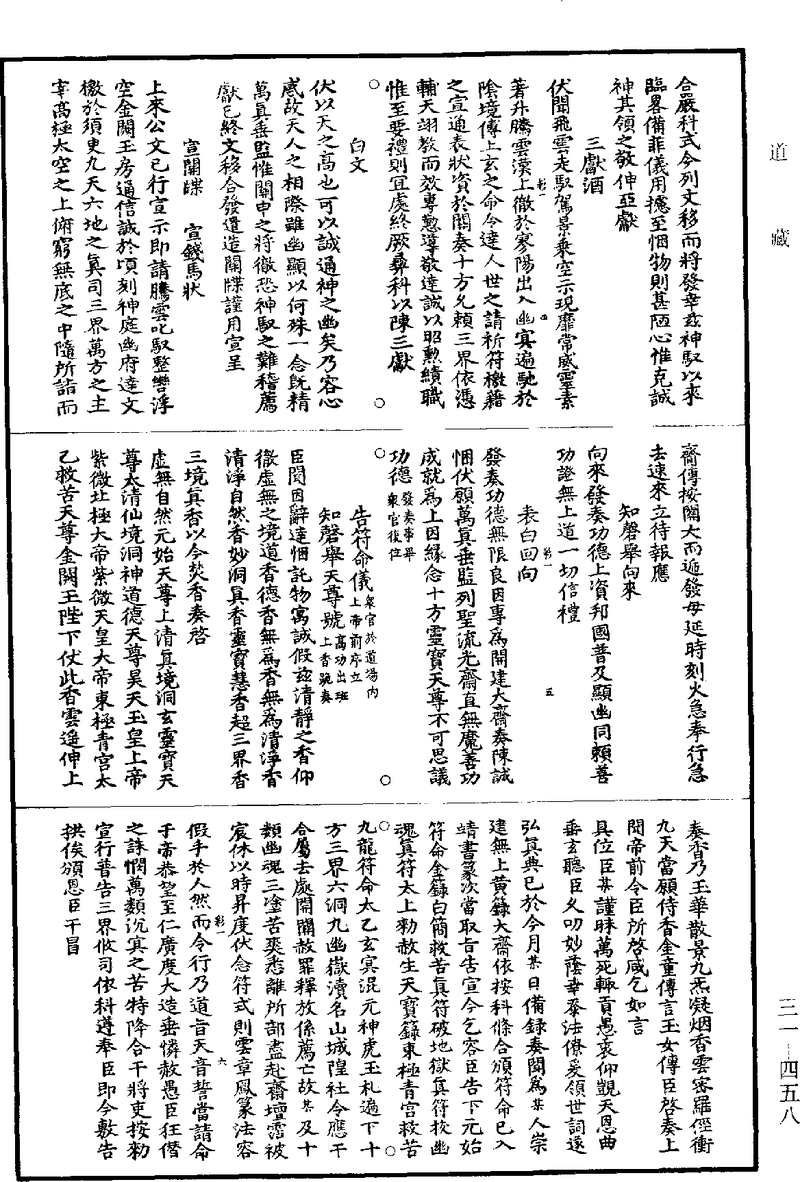 道藏
合嚴科式今列文移而將發幸茲神馭以來
臨畧備菲儀用攄至悃物則甚陋心惟克誠
神其領之敬伸亞獻
三獻酒
伏聞飛雲走馭駕景乘空示現靡常威靈素
著升騰雲漢上徹於寥陽出入幽冥遍馳於
陰境傳上玄之命令達人世之請祈符檄藉
之宣通表狀資於關奏十方允賴三界依憑
輔天翊教而效專懃導敬達誠以昭勲績職
惟至要禮則宜處終厥彞科以陳三獻
白文
伏以天之高也可以誠通神之幽矣乃容心
感故天人之相際雖幽顯以何殊一念旣精
萬真垂監惟關申之將徹恐神馭之難稽薦
獻已終文移合發遣造關牒謹用宣呈
宣關牒 宣錢馬狀
上來公文已行宣示即請騰雲叱馭整轡浮
空金闕玉房通信誠於頃刻神庭幽府達文
檄於須臾九天六地之真司三界萬方之主
宰高極太空之上俯窮無底之中隨所詣而
齎傳按關大而遞發毋延時刻火急奉行急
去速來立待報應
知磬舉向來
向來發奏功德上資邦國普及顯幽同賴善
功證無上道一切信禮
表白回向
發奏功德無限良因專為開建大齋奏陳誠
悃伏願萬真垂監列聖流光齋直無魔善功
成就為上因緣念十方靈寶天尊不可思議
功德發奏事畢衆官復位
告符命儀衆官於道場內上帝前序立
知磬舉天尊號高功出班上香跪奏
臣聞因辭達悃託物寓誠假茲清靜之香仰
徹虛無之境道香德香無為香無為清淨香
清淨自然香妙洞真香靈寶慧香超三界香
三境真香以今焚香奏啓
虛無自然元始天尊上清真境洞玄靈寶天
尊太清仙境洞神道德天尊昊天玉皇上帝
紫微北極大帝紫微天皇大帝東極青宮太
乙救苦天尊金闕玉陛下伏此香雲遥伸上
奏香乃玉華散景九炁凝烟香雲密羅徑衝
九天當願侍香金童傳言玉女傳臣啓奏上
聞帝前令臣所啓咸乞如言
具位臣某謹昧萬死輙貢愚衷仰覩天恩曲
垂玄聽臣久叨妙蔭幸忝法僚爰領世詞遠
弘真典已於今月某日備錄奏聞為某人崇
建無上黃籙大齋依按科條合頒符命已入
靖書篆次當取旨告宣今乞容臣告下元始
符命金籙白簡救苦真符破地獄真符拔幽
魂真符太上勑赦生天寶籙東極青宮救苦
九龍符命太乙玄冥混元神虎玉札遍下十
方三界六洞九幽嶽瀆名山城隍社令應干
合屬去處開闢赦罪釋放係薦亡故某及十
類幽魂三塗苦爽悉離所部盡赴齋壇霑被
宸休以時昇度伏念符式則雲章鳳篆法容
假手於人然而令行乃道旨天音誓當請命
于帝恭望至仁廣度大造垂憐赦愚臣狂僭
之誅憫萬類沉冥之苦特降合干將吏按勑
宣行普告三界攸司依科遵奉臣即今敷告
拱俟頒恩臣干冒
三一—四五八